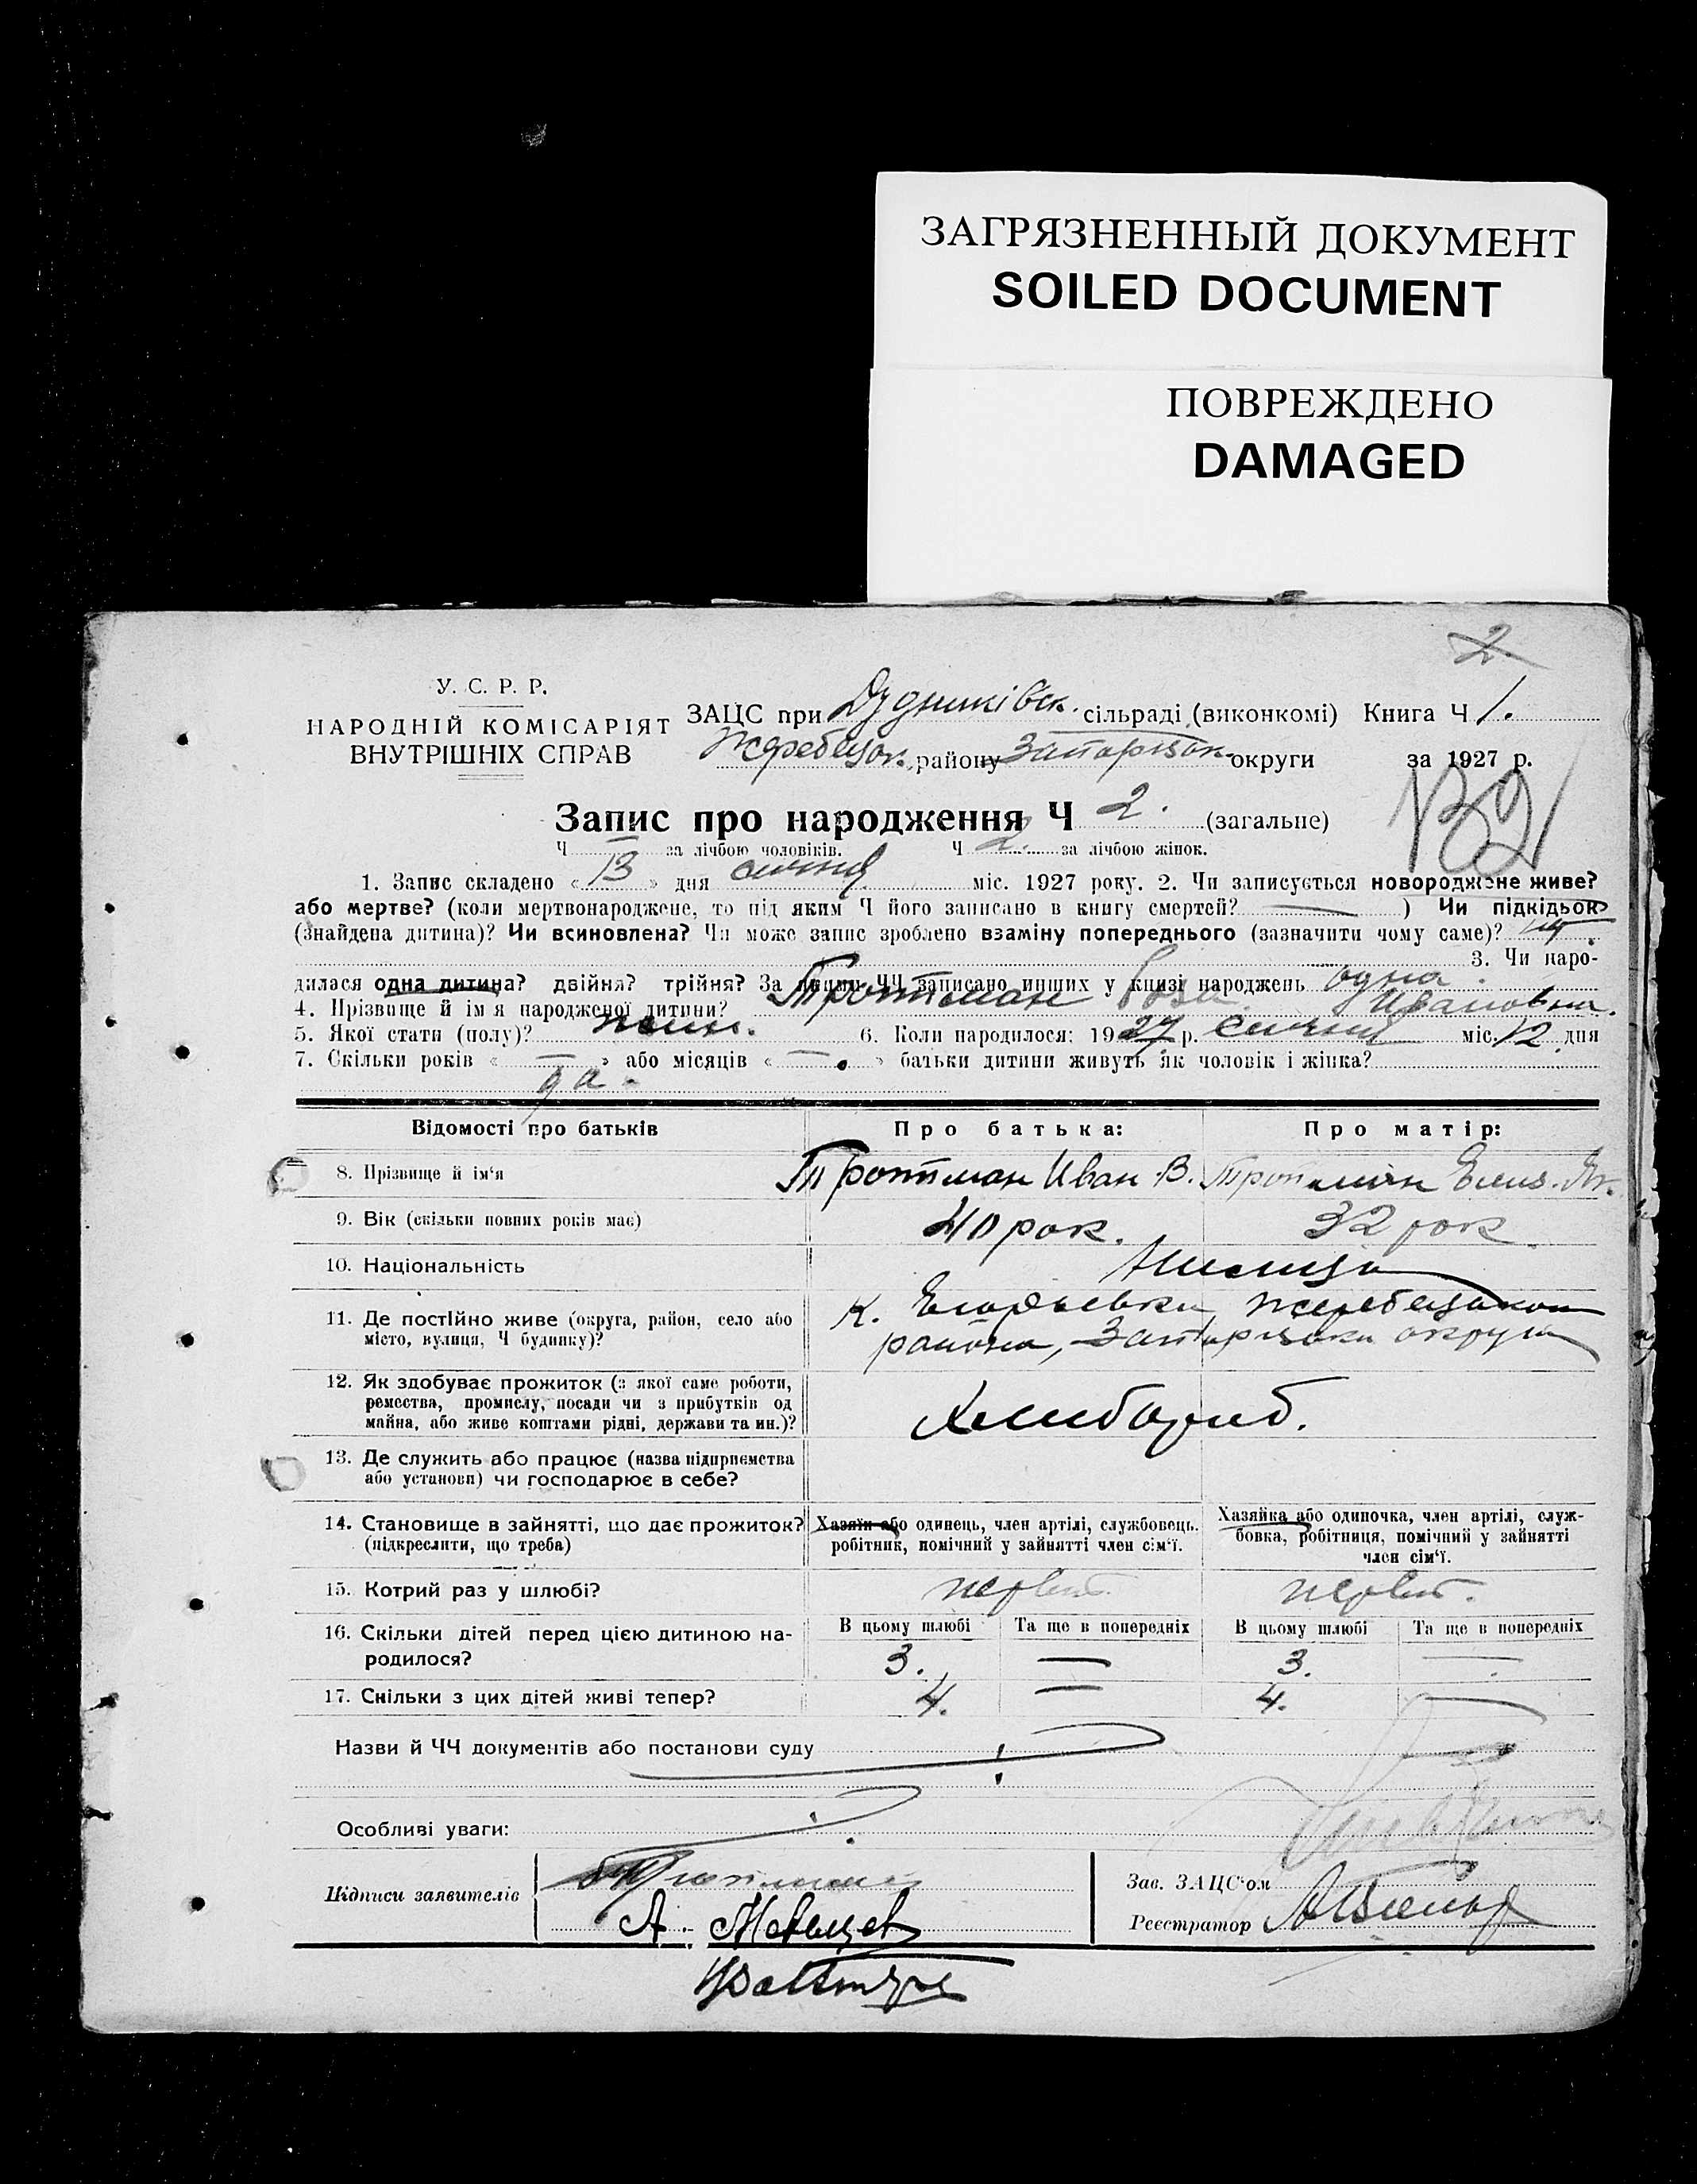 ЗАГРЯЗНЕННЫЙ ДОКУМЕНТ
SOILED DOCUMENT
ПОВРЕЖДЕНО
DAMAGED
2.
У. С. Р. Р.
НАРОДНІЙ КОМІСАРІЯТ
ВНУТРІШНІХ СПРАВ
ЗАЦС при Дудниківськ. сільраді (виконкомі) Книга Ч 1.
Жеребецьк. району Запорізьк. округи за 1927 р.
Запис про народження Ч 2. (загальне)
Ч — за лічбою чоловіків. Ч 2. за лічбою жінок.
1. Запис складено « 13 » дня січня міс. 1927 року. 2. Чи записується новороджене живе?
або мертве? (коли мертвонароджене, то під яким Ч його записано в книгу смертей? — ) Чи підкідьок
(знайдена дитина)? Чи всиновлена? Чи може запис зроблено взаміну попереднього (зазначити чому саме)?
3. Чи наро-
дилася одна дитина? двійня? трійня? За якими ЧЧ записано инших у книзі народжень одна.
4. Прізвище й ім'я народженої дитини? Тротман Роза Ивановна.
5. Якої стати (полу)? жин. 6. Коли народилося: 1927 р. січня міс. 12 дня
7. Скільки років « — » або місяців « — » батьки дитини живуть як чоловік і жінка?
да.
Відомості про батьків Про батька: Про матір:
8. Прізвище й ім'я Тротман Иван В. Тротман Елиз. Як.
9. Вік (скільки повних років має) 40 рок. 32 рок.
10. Національність
11. Де постійно живе (округа, район, село або
місто, вулиця, Ч будинку)?
К. Егорьевка Жеребецького
района, Запорізька округа
12. Як здобуває прожиток (з якої саме роботи,
ремества, промислу, посади чи з прибутків од
майна, або живе коштами рідні, держави та ин.)?
Хлибороб.
13. Де служить або працює (назва підприємства
або установи) чи господарює в себе?
14. Становище в зайнятті, що дає прожиток?
(підкреслити, що треба)
Хазяїн або одинець, член артілі, службовець.
робітник, помічний у зайнятті член сім'ї.
Хазяйка або одиночка, член артілі, служ-
бовка, робітниця, помічний у зайнятті
член сім'ї.
15. Котрий раз у шлюбі? первий первий.
16. Скільки дітей перед цією дитиною на-
родилося?
В цьому шлюбі Та ще в попередніх В цьому шлюбі Та ще в попередніх
3. — 3. —
17. Скільки з цих дітей живі тепер? 4. — 4. —
Назви й ЧЧ документів або постанови суду
Особливі уваги:
Підписи заявителів
Зав. ЗАЦС'ом
Реєстратор